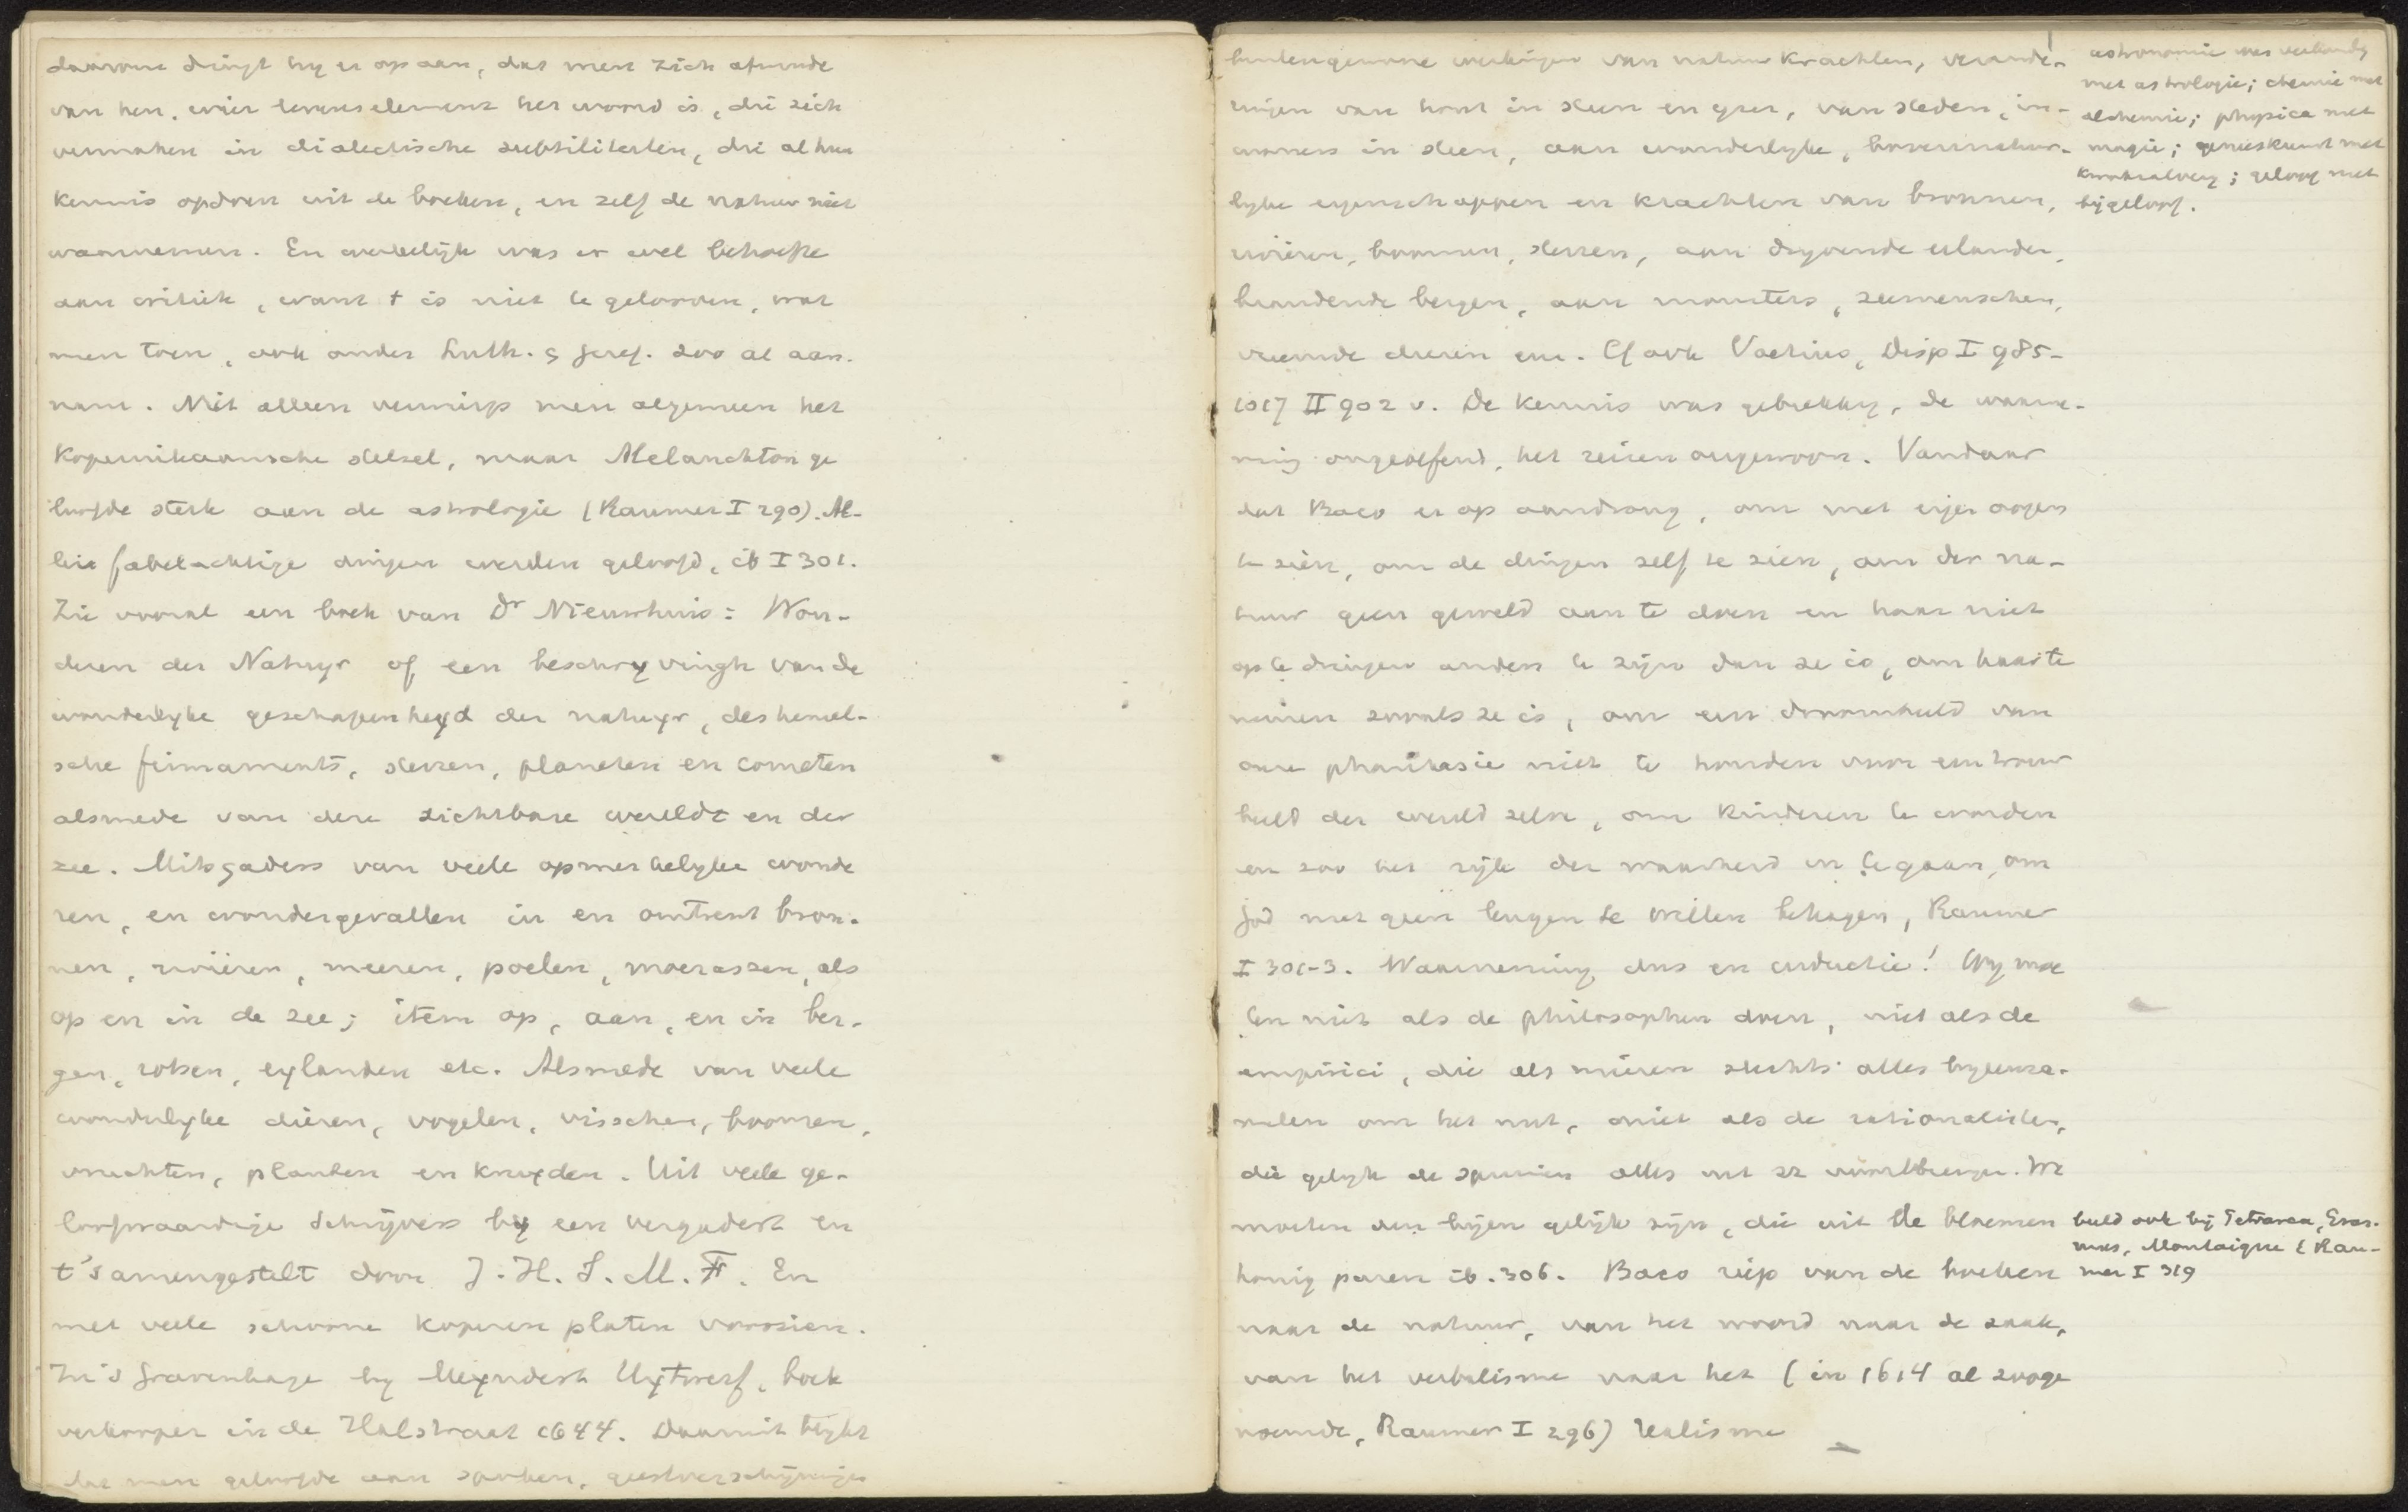 daarom dringt hy er op aan, dat men zich afwende
van hen, wier levenselement het woord is, die zich
vermaken in dialectische subtiliteiten, die al hun
kennis opdoen uit de boeken, en zelf de natuur niet
waarnemen. En werkelijk was er wel behoefte
aan critiek, want t is niet te gelooven, wat
men toen, ook onder Luth. & geref. zoo al aan-
nam. Niet alleen verwierp men algemeen het
Kopernikaansche stelsel, maar Melanchton ge
loofde sterk aan de astrologie (Raumer I 290). Al-
lerlei fabelachtige dingen werden geloofd, ib I 301.
Zie vooral een boek van Dr Nieuwhuis: Won-
deren der Natuyr of een beschryvingh van de
wonderlyke geschapenheyd der natuyr, des hemel-
sche firmaments, sterren, planeten en cometen
alsmede van dere zichtbare wereldt en der
zee. Mitsgaders van veele opmerkelyke wonde
ren, en wondergevallen in en omtrent bron-
nen, rivieren, meeren, poelen, moerassen, als
op en in de zee; item op, aan, en in ber-
gen, rotsen, eylanden etc. Alsmede van veele
wonderlyke dieren, vogelen, visschen, boomen,
vruchten, planten en kruyden. Uit veele ge-
loofwaardige schrijvers by een vergadert en
t'samengestelt door J. H. S. M. F. En
met veele schoone koperen platen voorzien.
In 's Gravenhage by Meyndert Uytwerf, boek
verkooper in de Halstraat 1644. Daaruit blykt
dat men geloofde aan spoken, geestverschijningen
buitengewone werkingen van natuurkrachten, verande-
ringen van hout in steen en yzer, van steden, in-
woners in steen, aan wonderlyke, bovennatuur-
lyke eigenschappen en krachten van bronnen,
rivieren, boomen, sterren, aan dryvende eilanden,
brandende bergen, aan monsters, zeemenschen,
vreemde dieren enz. Cf ook Voetius, Disp I 985-
1017 II 902 v. De kennis was gebrekkig, de waarne-
ming ongeoefend, het reizen ongewoon. Vandaar
dat Baco er op aandrong, om met eigen oogen
te zien, om de dingen zelf te zien, om der na-
tuur geen geweld aan te doen en haar niet
op te dringen anders te zijn dan ze is, om haar te
nemen zooals ze is, om een droombeeld van
onze phantasie niet te houden voor een trouw
beeld der wereld zelve, om kinderen te worden
en zoo het rijk der waarheid in te gaan, om
God met geen leugen te willen behagen, Raumer
I 301-3. Waarneming dus en inductie! Wy moe
ten niet als de philosophen doen, niet als de
empirici, die als mieren slechts alles byeenza-
melen om het nut, niet als de rationalisten,
die gelyk de spinnen alles uit zz voortbrengen. We
moeten den bijen gelijk zijn, die uit de bloemen
honig puren ib. 306. Baco riep van de boeken
naar de natuur, van het woord naar de zaak,
van het verbalisme naar het (in 1614 al zooge
noemde, Raumer I 296) realisme
astronomie was verbonden
met astrologie; chemie met
alchemie; physica met
magie; geneeskunst met
kwakzalverij; geloof met
bijgeloof.
beeld ook bij Petrarca, Eras-
mus, Montaigne (Rau-
mer I 319